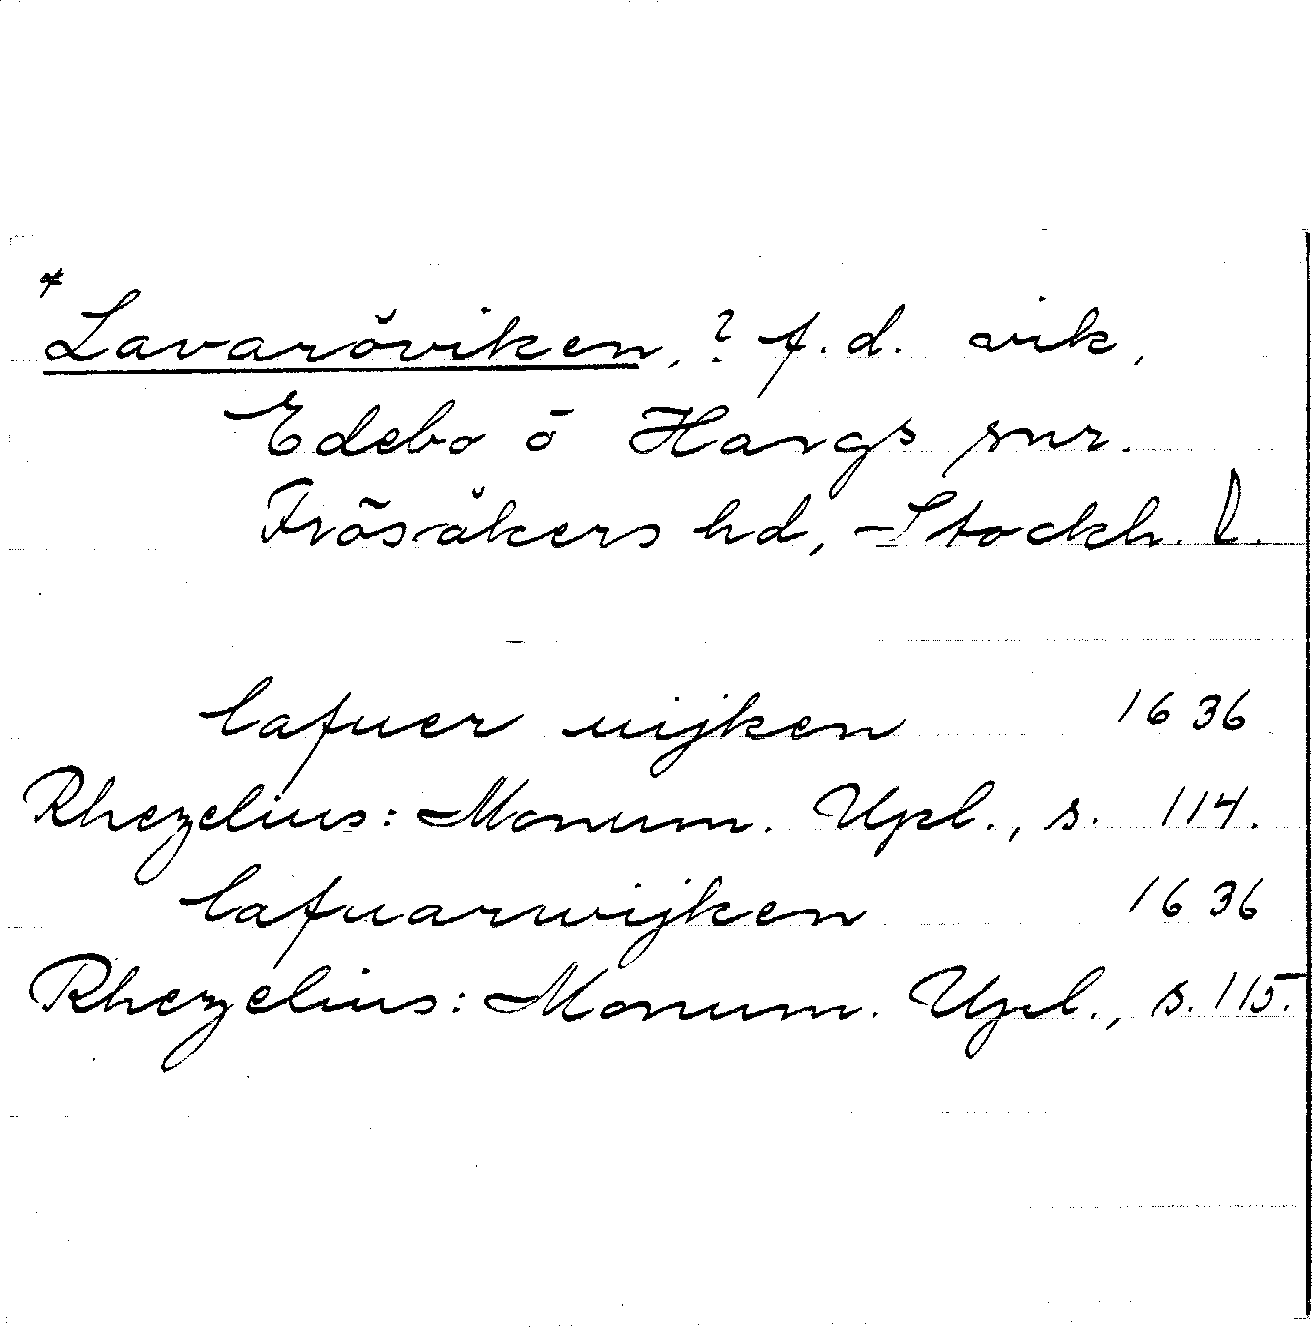 *
Lavaröviken, ? f.d. vik,
Edebo o Hargs snr.
Frösåkers hd, Stockh. l.
lafuer uijken 1636
Rhezelius: Monum. Upl., s. 114.
lafuarwijken 1636
Rhezelius: Monum. Upl., s. 115.